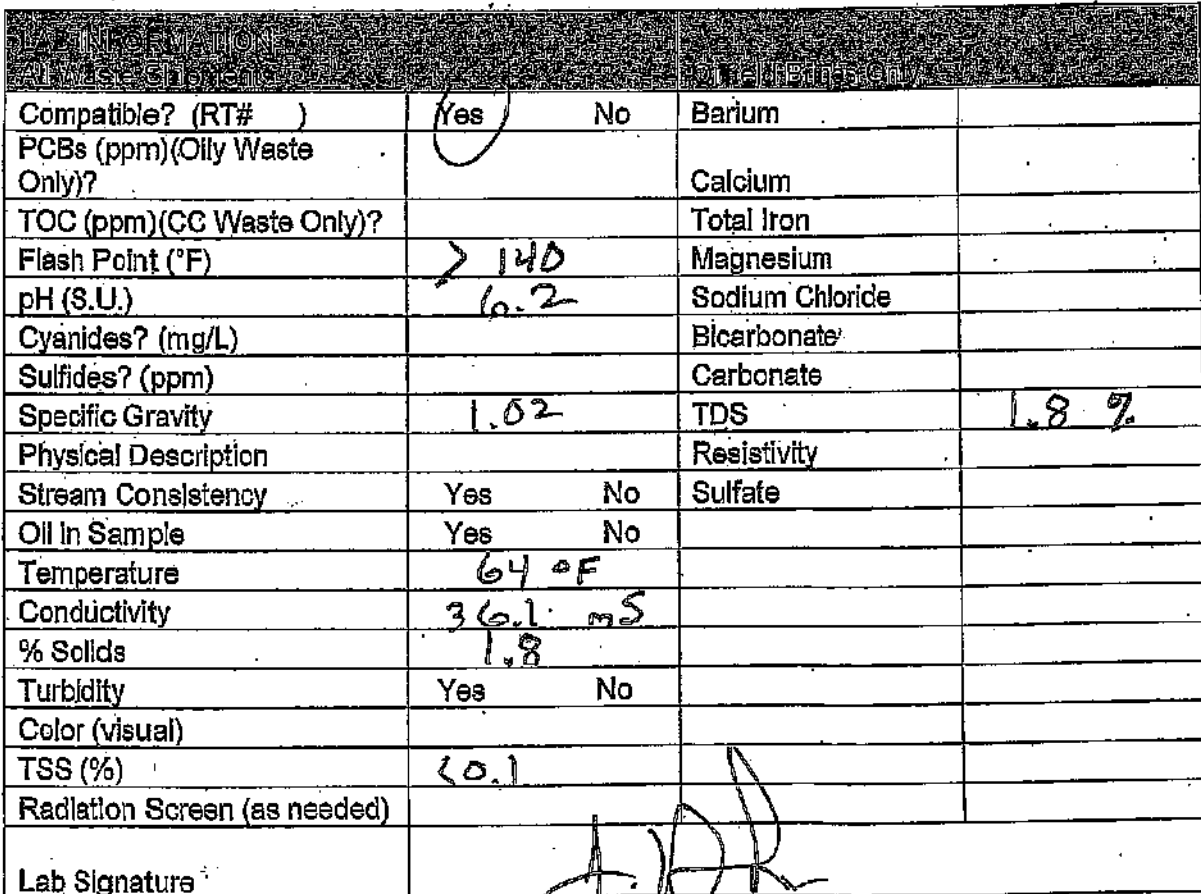 LAB INFORMATION
All Waste Shipments Oilfield Brines Only
Compatible? (RT# ) Yes No Barium
PCBs (ppm)(Oily Waste
Only)? Calcium
TOC (ppm)(CC Waste Only)? Total Iron
Flash Point (°F) > 140 Magnesium
pH (S.U.) 6.2 Sodium Chloride
Cyanides? (mg/L) Bicarbonate
Sulfides? (ppm) Carbonate
Specific Gravity 1.02 TDS 1.8 %
Physical Description Resistivity
Stream Consistency Yes No Sulfate
Oil in Sample Yes No
Temperature 64 °F
Conductivity 36.1 mS
% Solids 1.8
Turbidity Yes No
Color (visual)
TSS (%) <0.1
Radiation Screen (as needed)
Lab Signature